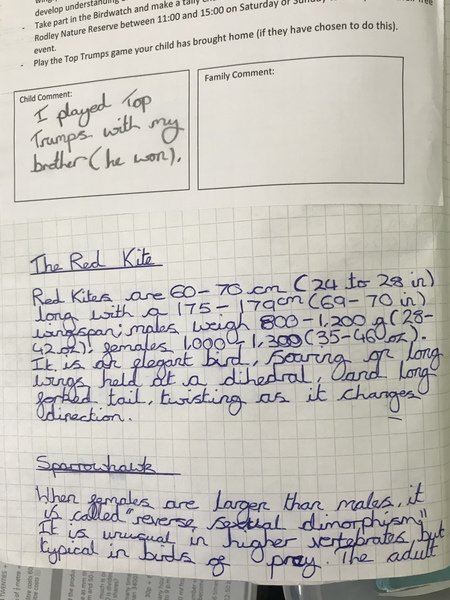 develop understanding
- Take part in the Birdwatch and make a tally
Rodley Nature Reserve between 11:00 and 15:00 on Saturday or
event.
- Play the Top Trumps game your child has brought home (if they have chosen to do this).
Child Comment:
I played Top
Trumps with my
brother (he won).
Family Comment:
The Red Kite
Red Kites are 60-70 cm (24 to 28 in)
long with a 175-179cm (69-70 in)
wingspan; males weigh 800-1,200 g (28-
42 oz), females 1,000-1,300 (35-46 oz).
It is an elegant bird, soaring on long
wings held at a dihedral, and long
forked tail, twisting as it changes
direction.
Sparrowhawk
When females are larger than males, it
is called "reverse sexual dimorphism"
It is unusual in higher vertebrates, but
typical in birds of prey. The adult